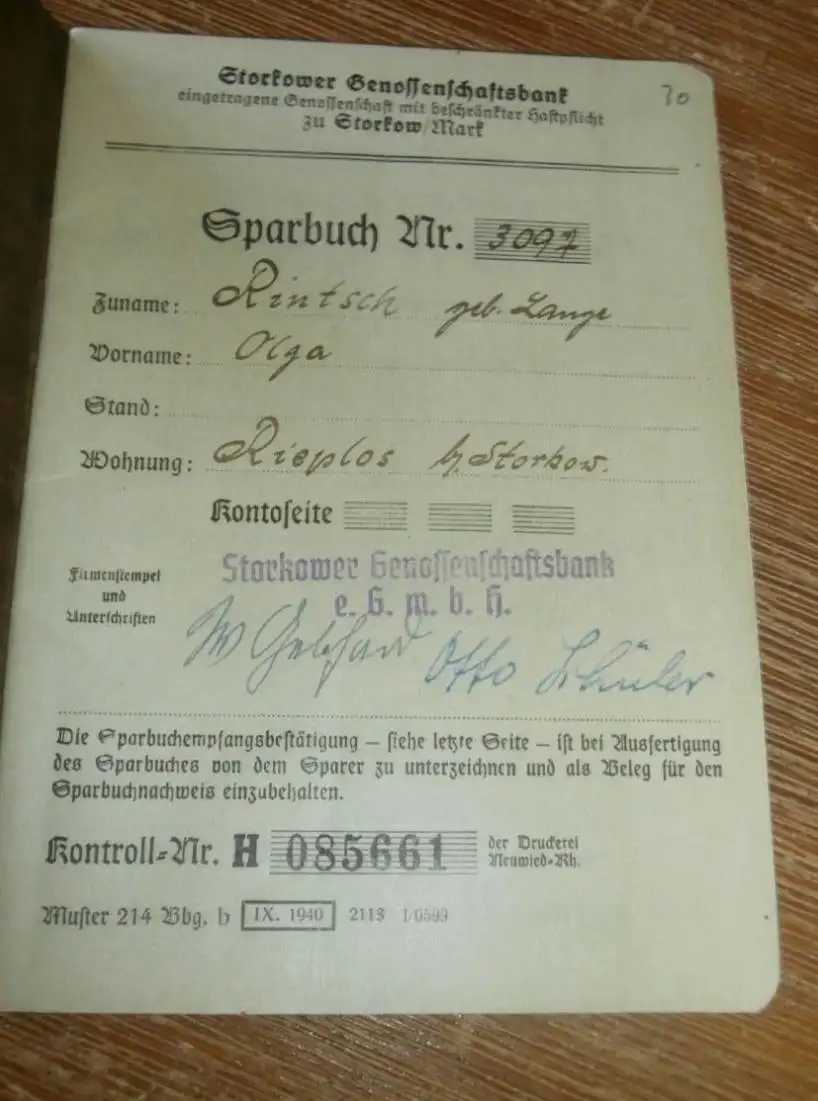 Storkower Genossenschaftsbank
eingetragene Genossenschaft mit beschränkter Haftpflicht
zu Storkow/Mark
30
Sparbuch Nr. 3097
Zuname: Rintsch geb. Lange
Vorname: Olga
Stand:
Wohnung: Rieplos b/Storkow.
Kontoseite
Storkower Genossenschaftsbank
e. G. m. b. H.
Firmenstempel
und
Unterschriften
W Gebhard Otto Schüler
Die Sparbuchempfangsbestätigung – siehe letzte Seite – ist bei Ausfertigung
des Sparbuches von dem Sparer zu unterzeichnen und als Beleg für den
Sparbuchnachweis einzubehalten.
Kontroll-Nr. H 085661 der Druckerei
Neuwied-Rh.
Muster 214 Bbg. b IX. 1940 211S 1/0599